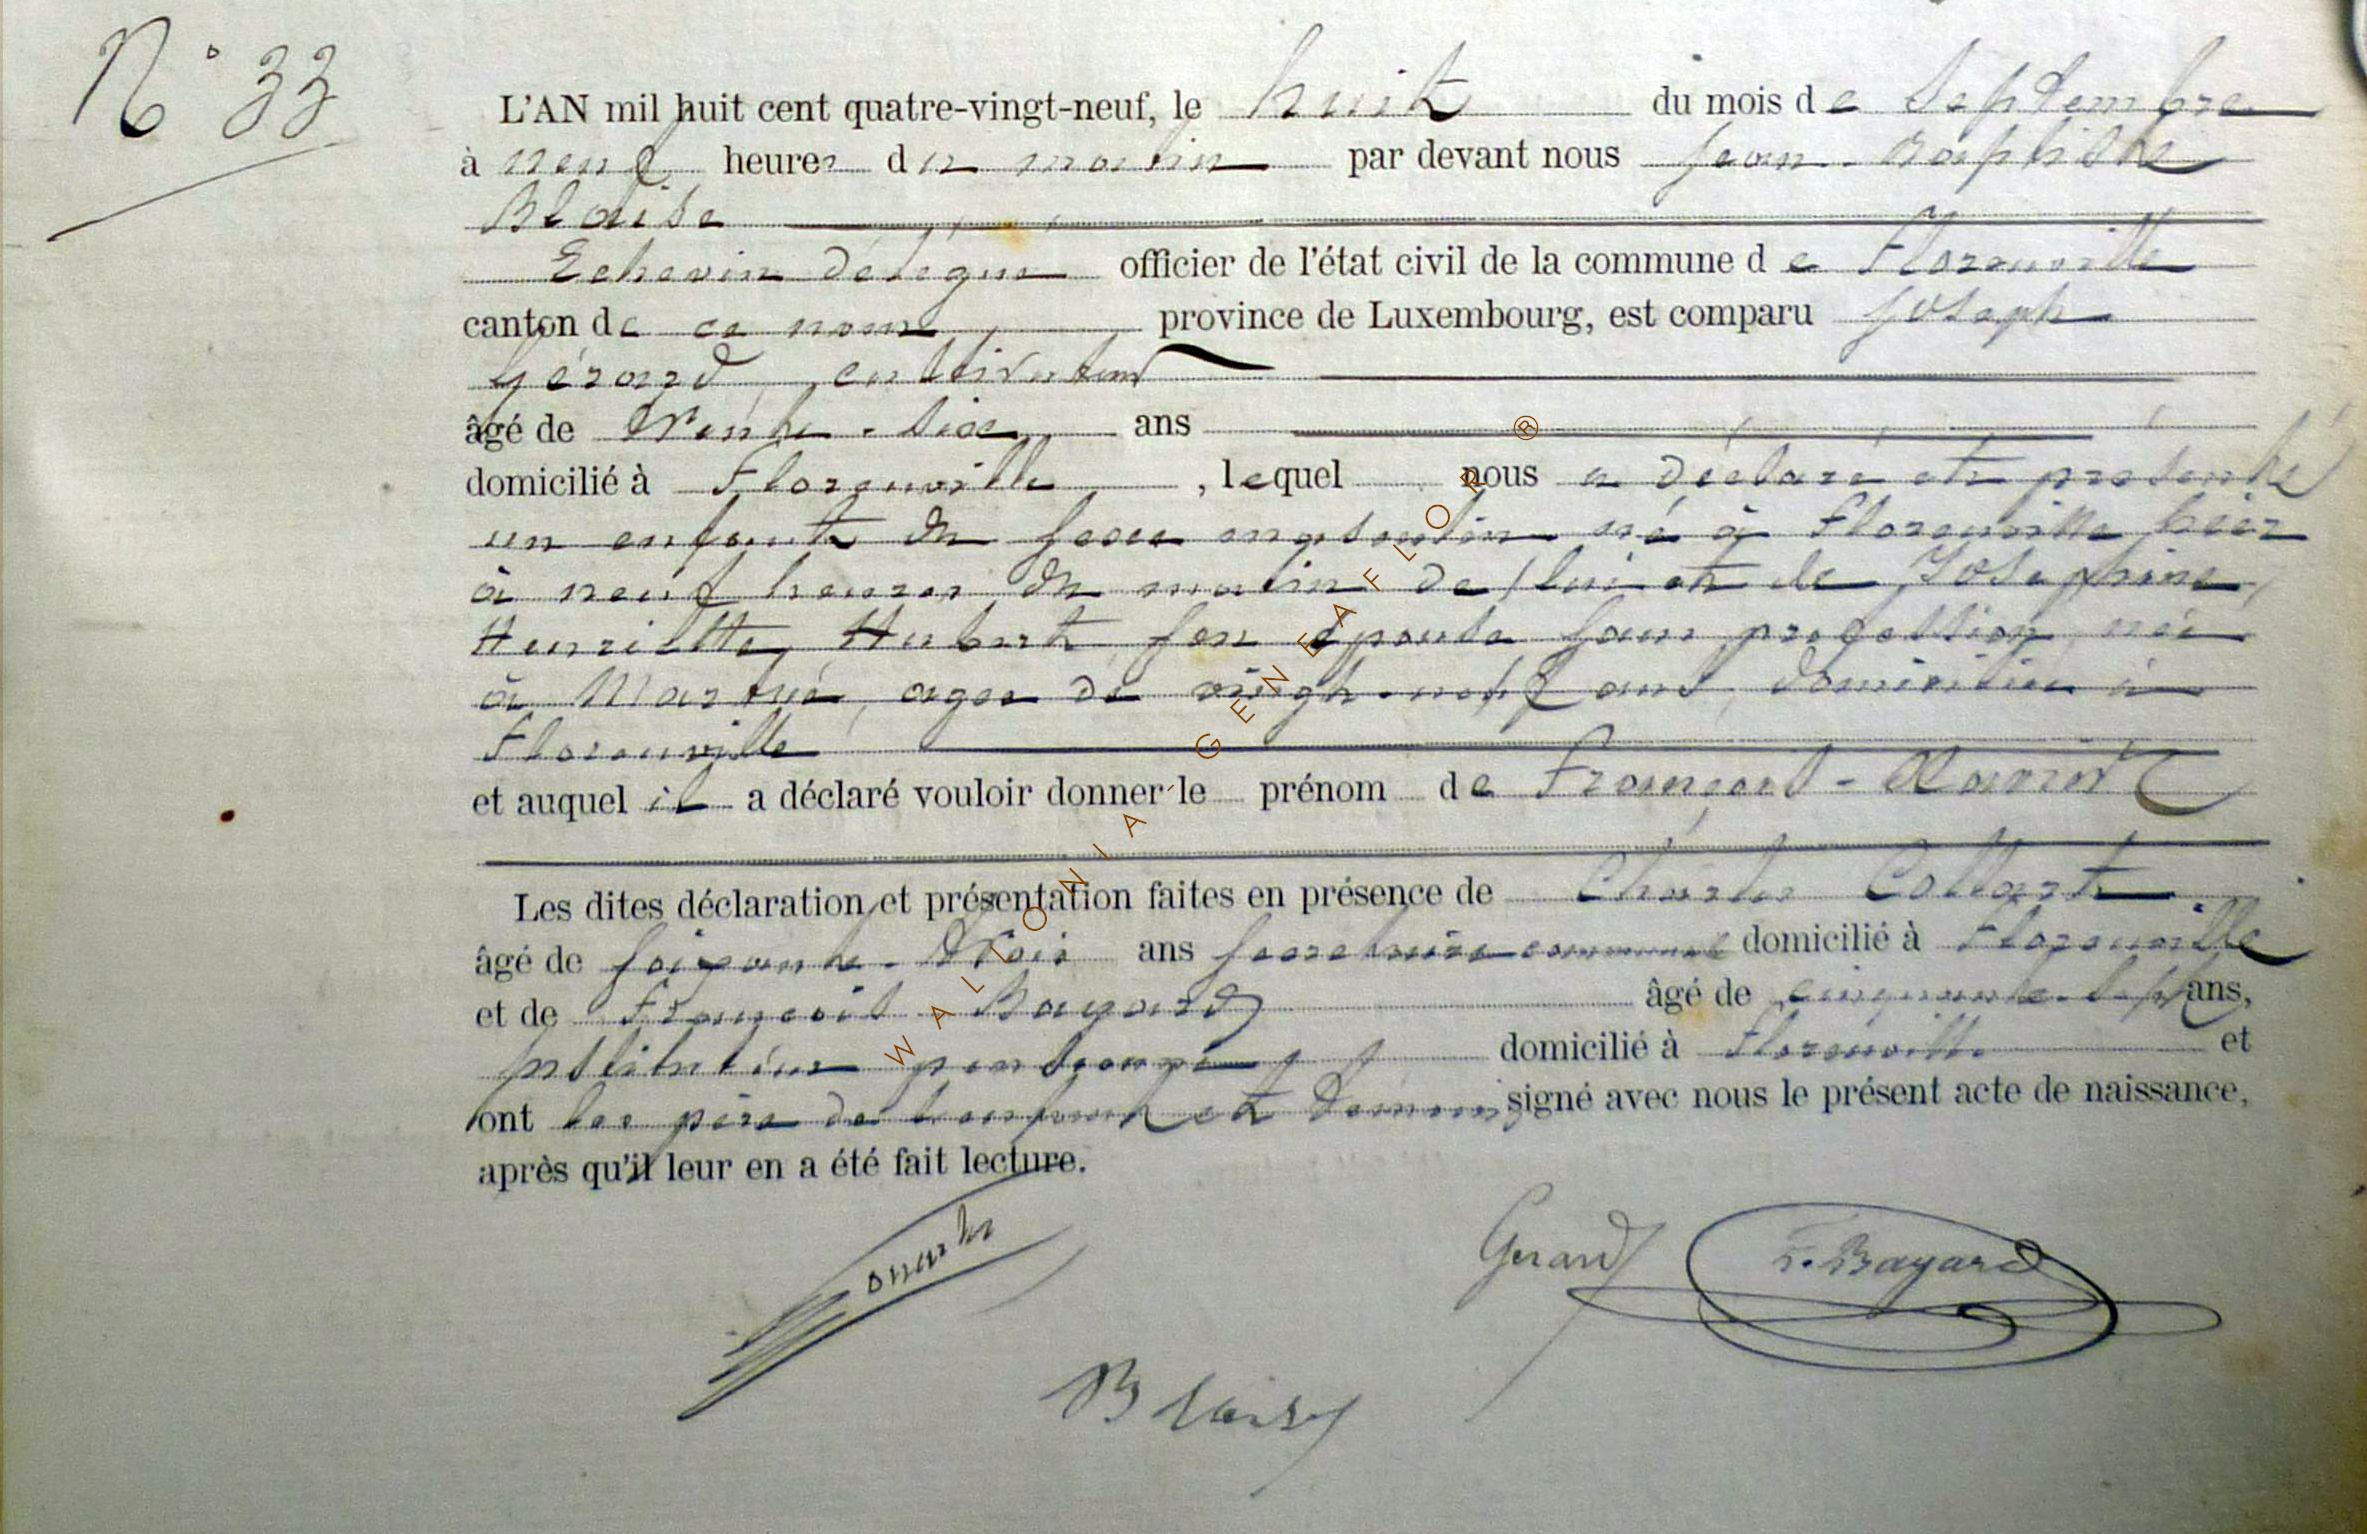 N° 33
L'AN mil huit cent quatre-vingt-neuf, le huit du mois de Septembre
à neuf heures du matin par devant nous Jean-Baptiste
Blaise
Echevin délégué officier de l'état civil de la commune de Florenville
canton de ce nom province de Luxembourg, est comparu Joseph
Gérard, cultivateur
âgé de trente-six ans
domicilié à Florenville, lequel nous a déclaré et présenté
un enfant du sexe masculin né à Florenville hier
à neuf heures du matin de lui et de Joséphine
Henriette Hubert son épouse sans profession née
à, agée de vingt-neuf ans, domiciliée à
Florenville
et auquel il a déclaré vouloir donner le prénom de François-
Les dites déclaration et présentation faites en présence de Charles Collart
âgé de soixante-trois ans secrétaire communal domicilié à Florenville
et de François Bayard âgé de cinquante-sept ans,
instituteur pensionné domicilié à Florenville et
ont les père de l'enfant et témoins signé avec nous le présent acte de naissance,
après qu'il leur en a été fait lecture.
Gerard F. Bayard
Blaise
WALLONIA GENEAFLOR ®